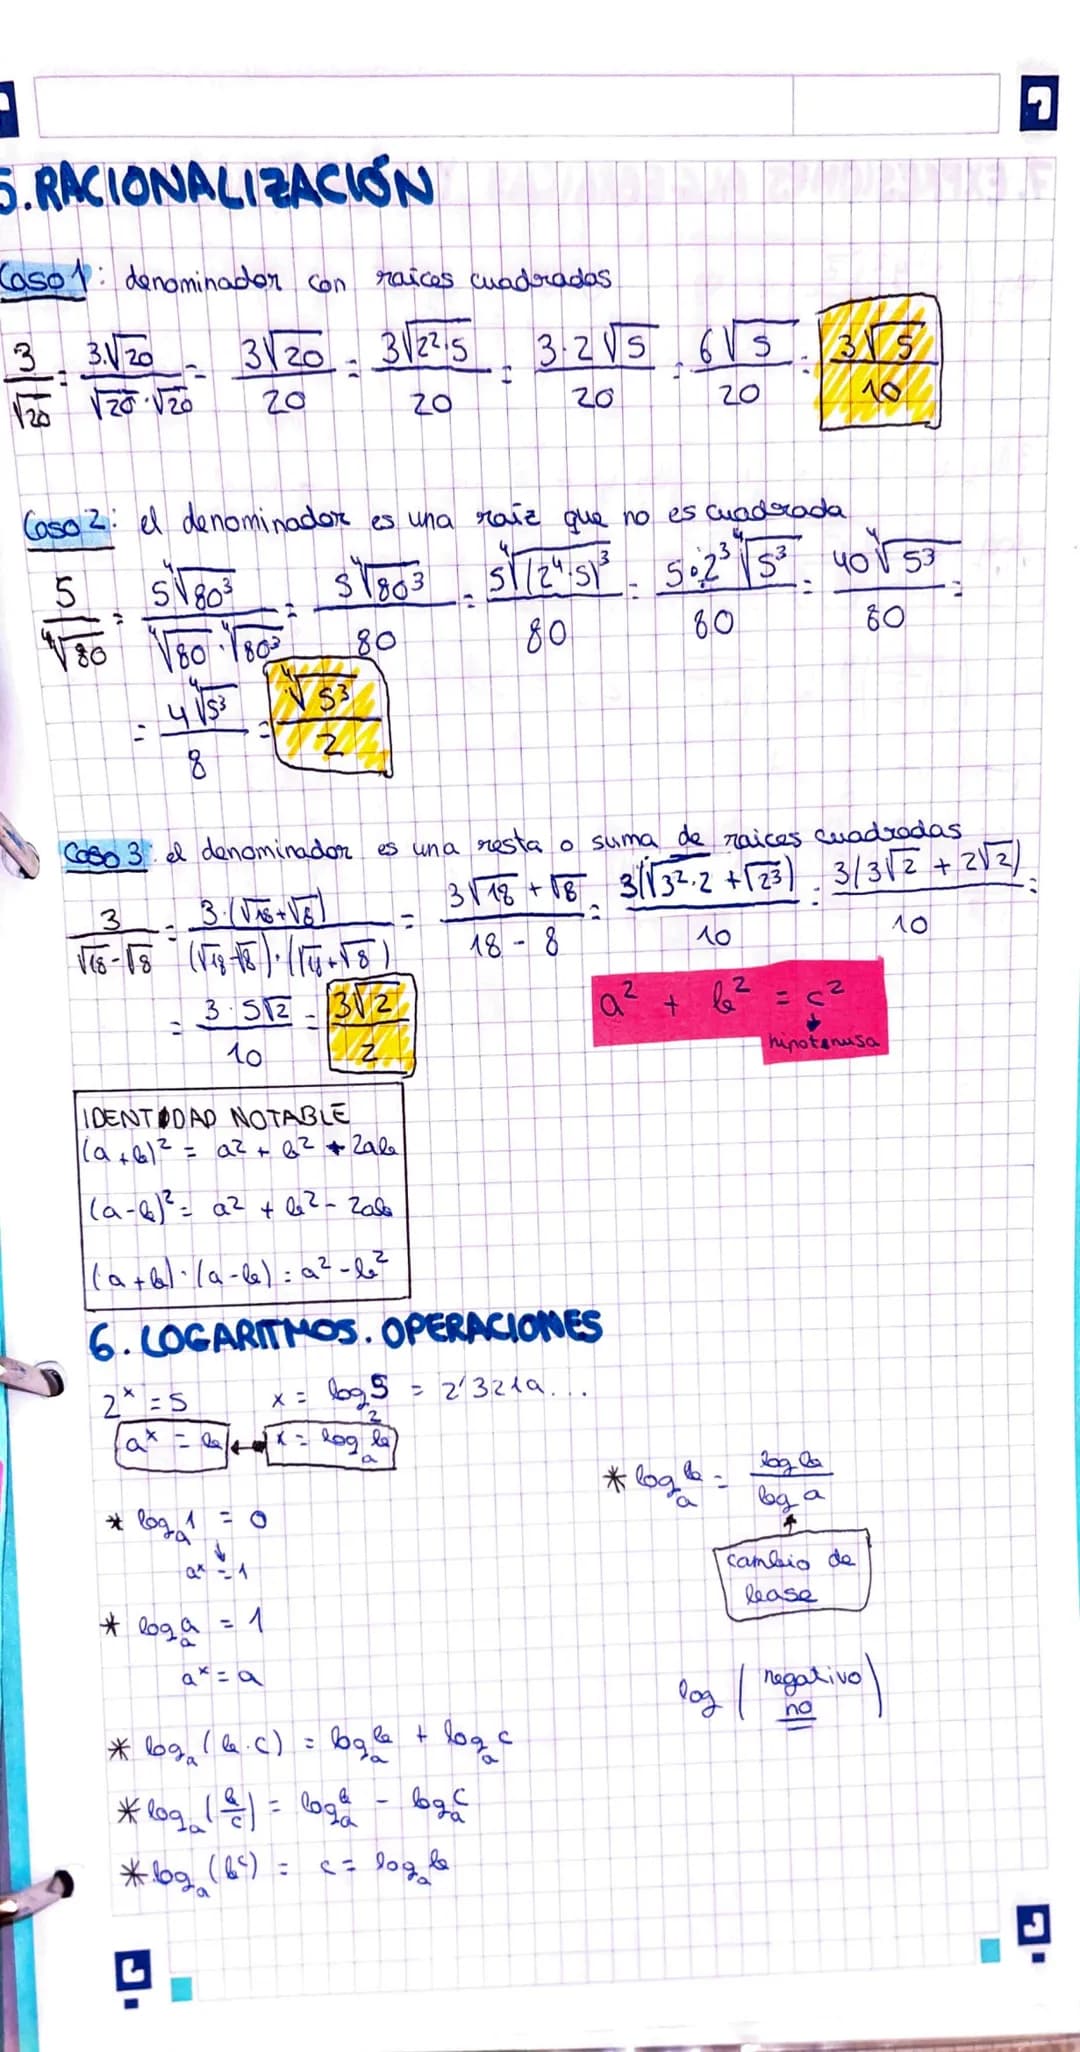 5. RACIONALIZACIÓN
Caso 1: denominador con raices cuadradas
3/√20 = 3·√20/√20·√20 = 3√20/20 = 3√2²·5/20 = 3·2√5/20 = 6√5/20 = 3√5/10
Caso 2: el denominador es una raíz que no es cuadrada
5/⁴√80 = 5⁴√80³/⁴√80·⁴√80³ = 5⁴√80³/80 = 5⁴√(2⁴·5)³/80 = 5·2³⁴√5³/80 = 40⁴√5³/80 =
= 4⁴√5³/8 = ⁴√5³/2
Caso 3: el denominador es una resta o suma de raices cuadradas
3/√18-√8 = 3·(√18+√8)/(√18-√8)·(√18+√8) = 3√18+√8/18-8 = 3(√3²·2+√2³)/10 = 3(3√2+2√2)/10 =
= 3·5√2/10 = 3√2/2
a² + b² = c²
hipotenusa
IDENTIDAD NOTABLE
(a+b)² = a² + b² + 2ab
(a-b)² = a² + b² - 2ab
(a+b)·(a-b) = a² - b²
6. LOGARITMOS. OPERACIONES
2ˣ = 5 x = log₂5 = 2'3219...
aˣ = b x = logₐb
* logₐb = log b/log a
cambio de
base
* logₐ1 = 0
aˣ = 1
* logₐa = 1
aˣ = a
log (negativo)
no
* logₐ(b·c) = logₐb + logₐc
* logₐ(b/c) = logₐb - logₐc
* logₐ(bᶜ) = c = logₐb